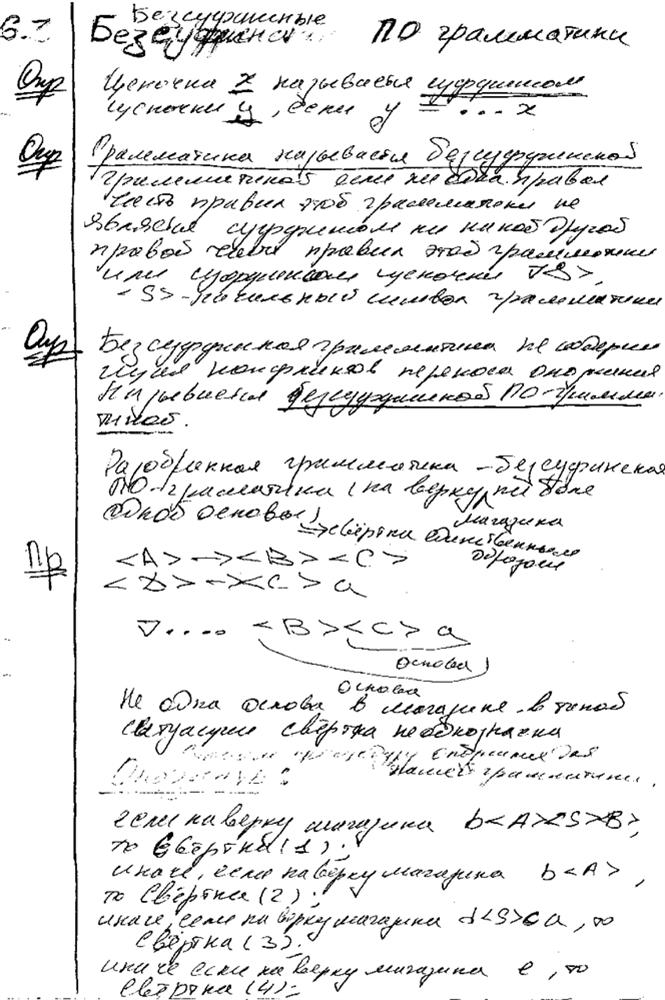 Бессуффиксные
Безсуффиксн ПО грамматики
Опр Цепочка x называется суффиксом
цепочки y, если y = ... x
Опр Грамматика называется безсуффиксной
грамматикой если ни одна правая
часть правил этой грамматики не
является суффиксом никакой другой
правой части правил этой грамматики
или суффиксом цепочки ∇<S>,
<S> - начальный символ грамматики
Опр Безсуффиксная грамматика не содержи
щая конфликтов переноса опознания
Называется безсуффиксной ПО-грамма-
тикой.
Разобранная грамматика - безсуффиксная
ПО-грамматика (на верху не боле
одной основы) магазина
⇒ свёртка единственным
образом
Пр <A> → <B><C>
<D> → <C>a
∇.... <B><C>a
основа
основа
Не одна основа в магазине. в такой
ситуации свёртка неоднозначна
процедуру опознания для
нашей грамматики.
Опознать:
если наверху магазина b<A><S><B>,
то Свёртка(1);
иначе, если наверху магазина b<A>,
то Свёртка(2);
иначе, если наверху магазина d<S>ca, то
Свёртка(3);
иначе если наверху магазина e, то
Свёртка(4);